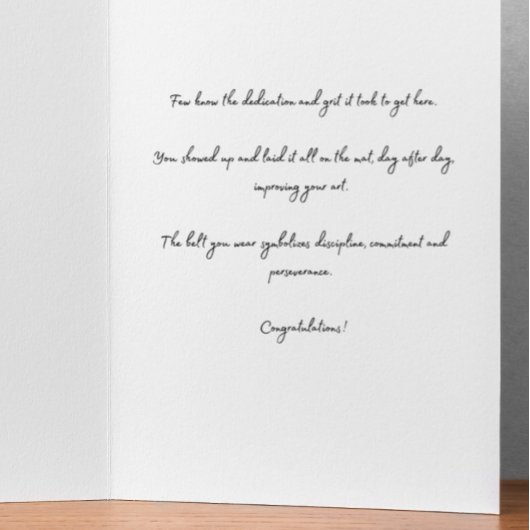 Few know the dedication and grit it took to get here.
You showed up and laid it all on the mat, day after day,
improving your art.
The belt you wear symbolizes discipline, commitment and
perseverance.
Congratulations!